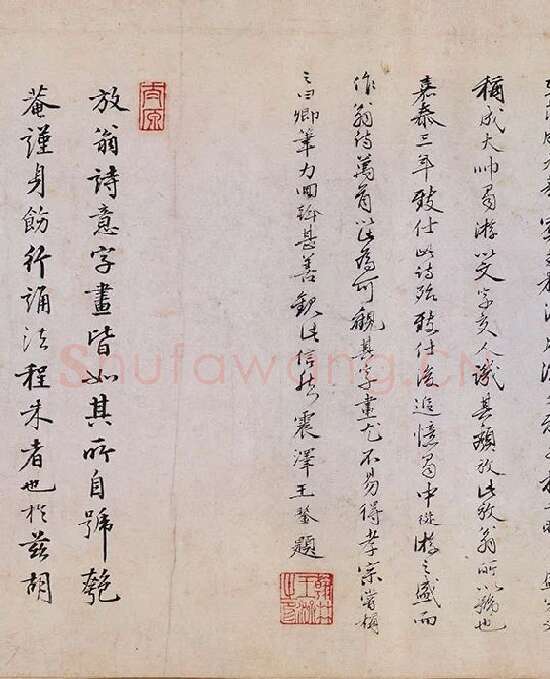 稱成大帥蜀游以文字交人譏其頹放此放翁所以號也
嘉泰三年致仕此詩殆致仕後追憶蜀中從游之盛而
作翁詩萬首此為可觀其字畫尤不易得孝宗嘗稱
之曰卿筆力回斡甚善觀此信然震澤王鏊題
放翁詩意字畫皆如其所自號匏
菴謹身飭行誦法程朱者也於茲胡
Shufawang.CN